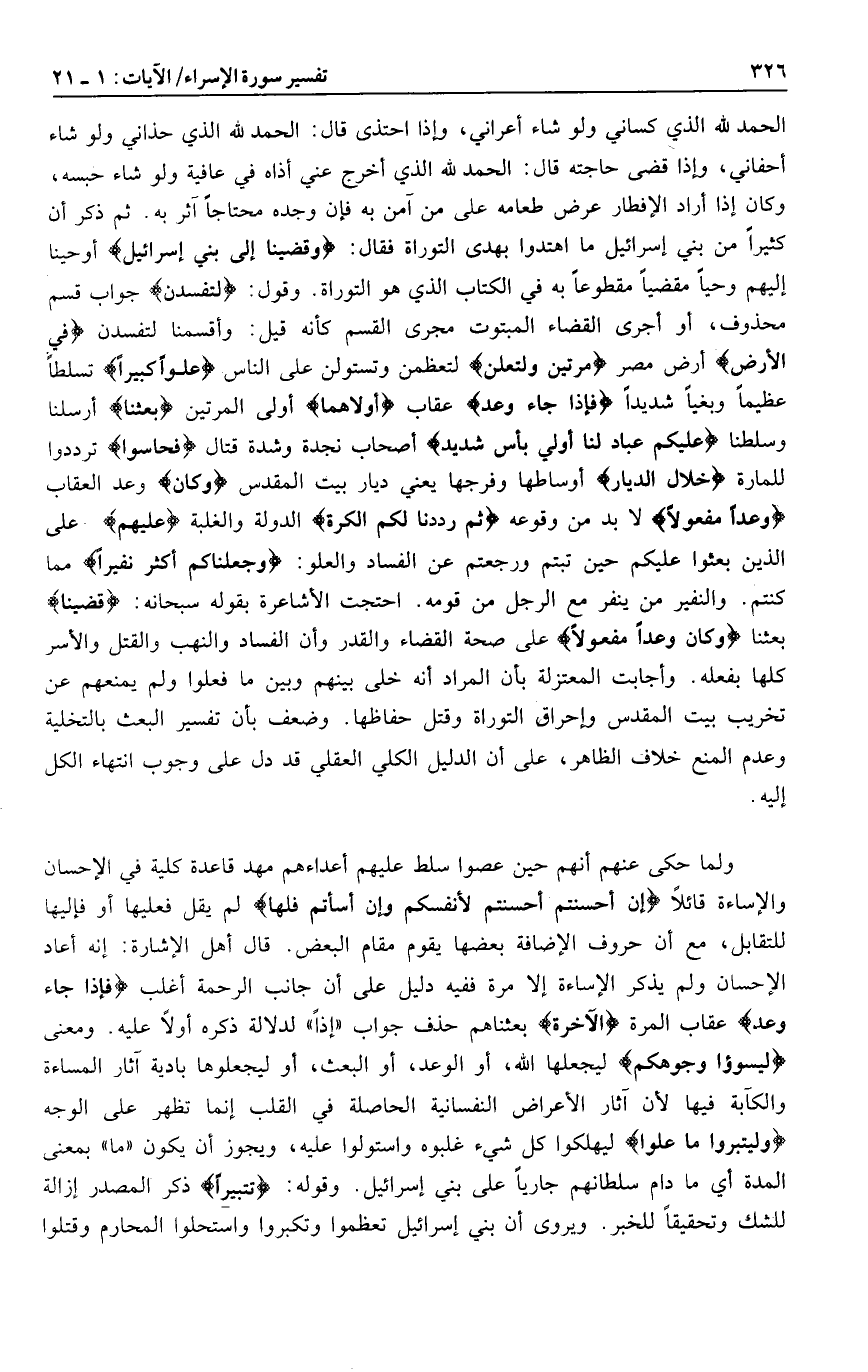 ٣٢٦ تفسير سورة الإسراء/ الآيات: ١ - ٢١
الحمد لله الذي كساني ولو شاء أعراني، وإذا احتذى قال: الحمد لله الذي حذاني ولو شاء
أحفاني، وإذا قضى حاجته قال: الحمد لله الذي أخرج عني أذاه في عافية ولو شاء حبسه،
وكان إذا أراد الإفطار عرض طعامه على من آمن به فإن وجده محتاجاً آثر به. ثم ذكر أن
كثيراً من بني إسرائيل ما اهتدوا بهدى التوراة فقال: ﴿وقضينا إلى بني إسرائيل﴾ أوحينا
إليهم وحياً مقضياً مقطوعاً به في الكتاب الذي هو التوراة. وقول: ﴿لتفسدن﴾ جواب قسم
محذوف، أو أجرى القضاء المبتوت مجرى القسم كأنه قيل: وأقسمنا لتفسدن ﴿في
الأرض﴾ أرض مصر ﴿مرتين ولتعلن﴾ لتعظمن وتستولن على الناس ﴿علواً كبيراً﴾ تسلطاً
عظيماً وبغياً شديداً ﴿فإذا جاء وعد﴾ عقاب ﴿أولاهما﴾ أولى المرتين ﴿بعثنا﴾ أرسلنا
وسلطنا ﴿عليكم عباد لنا أولي بأس شديد﴾ أصحاب نجدة وشدة قتال ﴿فحاسوا﴾ ترددوا
للمارة ﴿خلال الديار﴾ أوساطها وفرجها يعني ديار بيت المقدس ﴿وكان﴾ وعد العقاب
﴿وعداً مفعولاً﴾ لا بد من وقوعه ﴿ثم رددنا لكم الكرة﴾ الدولة والغلبة ﴿عليهم﴾ على
الذين بعثوا عليكم حين تبتم ورجعتم عن الفساد والعلو: ﴿وجعلناكم أكثر نفيراً﴾ مما
كنتم. والنفير من ينفر مع الرجل من قومه. احتجت الأشاعرة بقوله سبحانه: ﴿قضينا﴾
بعثنا ﴿وكان وعداً مفعولاً﴾ على صحة القضاء والقدر وأن الفساد والنهب والقتل والأسر
كلها بفعله. وأجابت المعتزلة بأن المراد أنه خلى بينهم وبين ما فعلوا ولم يمنعهم عن
تخريب بيت المقدس وإحراق التوراة وقتل حفاظها. وضعف بأن تفسير البعث بالتخلية
وعدم المنع خلاف الظاهر، على أن الدليل الكلي العقلي قد دل على وجوب انتهاء الكل
إليه.
ولما حكى عنهم أنهم حين عصوا سلط عليهم أعداءهم مهد قاعدة كلية في الإحسان
والإساءة قائلاً ﴿إن أحسنتم أحسنتم لأنفسكم وإن أسأتم فلها﴾ لم يقل فعليها أو فإليها
للتقابل، مع أن حروف الإضافة بعضها يقوم مقام البعض. قال أهل الإشارة: إنه أعاد
الإحسان ولم يذكر الإساءة إلا مرة ففيه دليل على أن جانب الرحمة أغلب ﴿فإذا جاء
وعد﴾ عقاب المرة ﴿الآخرة﴾ بعثناهم حذف جواب «إذاً» لدلالة ذكره أولاً عليه. ومعنى
﴿ليسوؤا وجوهكم﴾ ليجعلها الله، أو الوعد، أو البعث، أو ليجعلوها بادية آثار المساءة
والكآبة فيها لأن آثار الأعراض النفسانية الحاصلة في القلب إنما تظهر على الوجه
﴿وليتبروا ما علوا﴾ ليهلكوا كل شيء غلبوه واستولوا عليه، ويجوز أن يكون «ما» بمعنى
المدة أي ما دام سلطانهم جارياً على بني إسرائيل. وقوله: ﴿تتبيراً﴾ ذكر المصدر إزالة
للشك وتحقيقاً للخبر. ويروى أن بني إسرائيل تعظموا وتكبروا واستحلوا المحارم وقتلوا